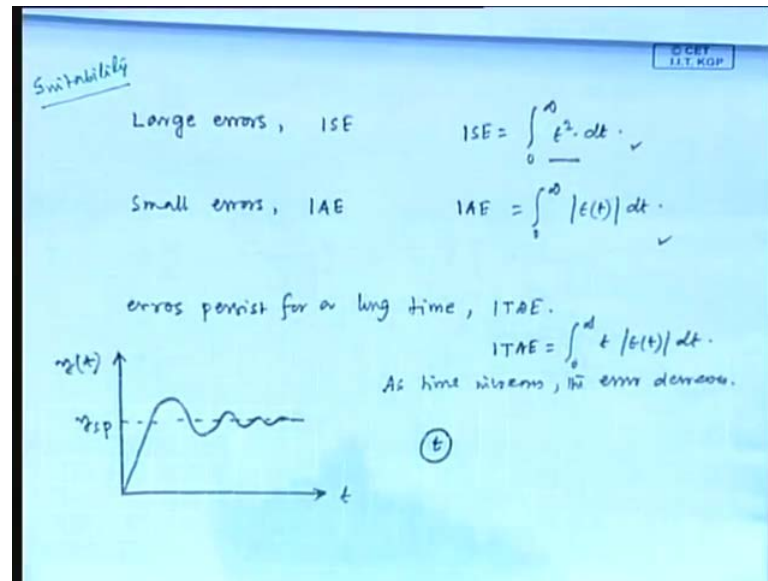 © CET
I.I.T. KGP
Suitability
Large errors, ISE ISE = ∫₀^∞ ϵ². dt.
Small errors, IAE IAE = ∫₀^∞ |ϵ(t)| dt.
erros persist for a long time, ITAE.
ITAE = ∫₀^∞ t |ϵ(t)| dt.
As time increases, the error decreases.
y(t)
y_sp
t
t